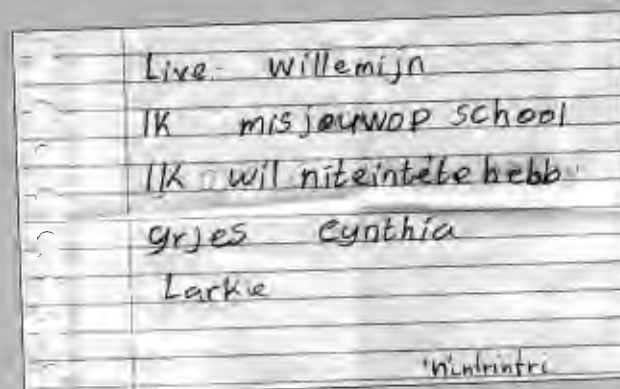 Live willemijn
IK mis jouwop school
IK wil niteintete hebb
grjes Cynthia
Larkie